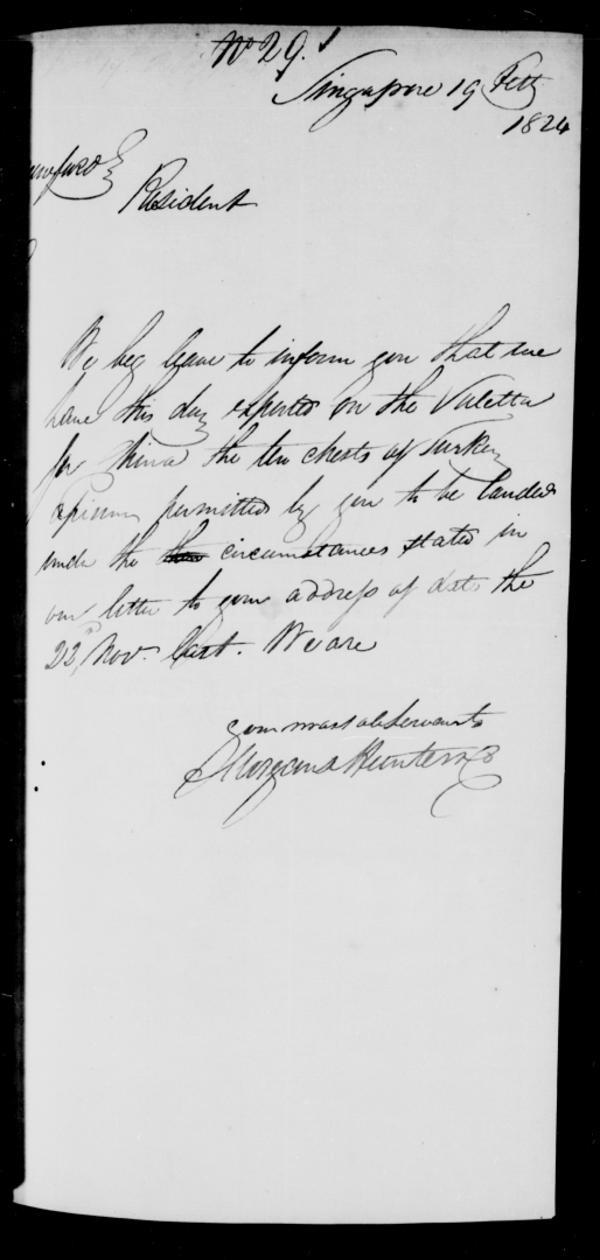 No 29.
Singapore 19 Feby
1824
awfurd Esq
Resident
We beg leave to inform you that we
have this day exported on the Valetta
for China the ten chests of Turkey
Opium permitted by you to be landed
under the circumstances stated in
our letter to your address of date the
22d Nov. last. We are
your most ob Servants
Morgans Hunter & Co